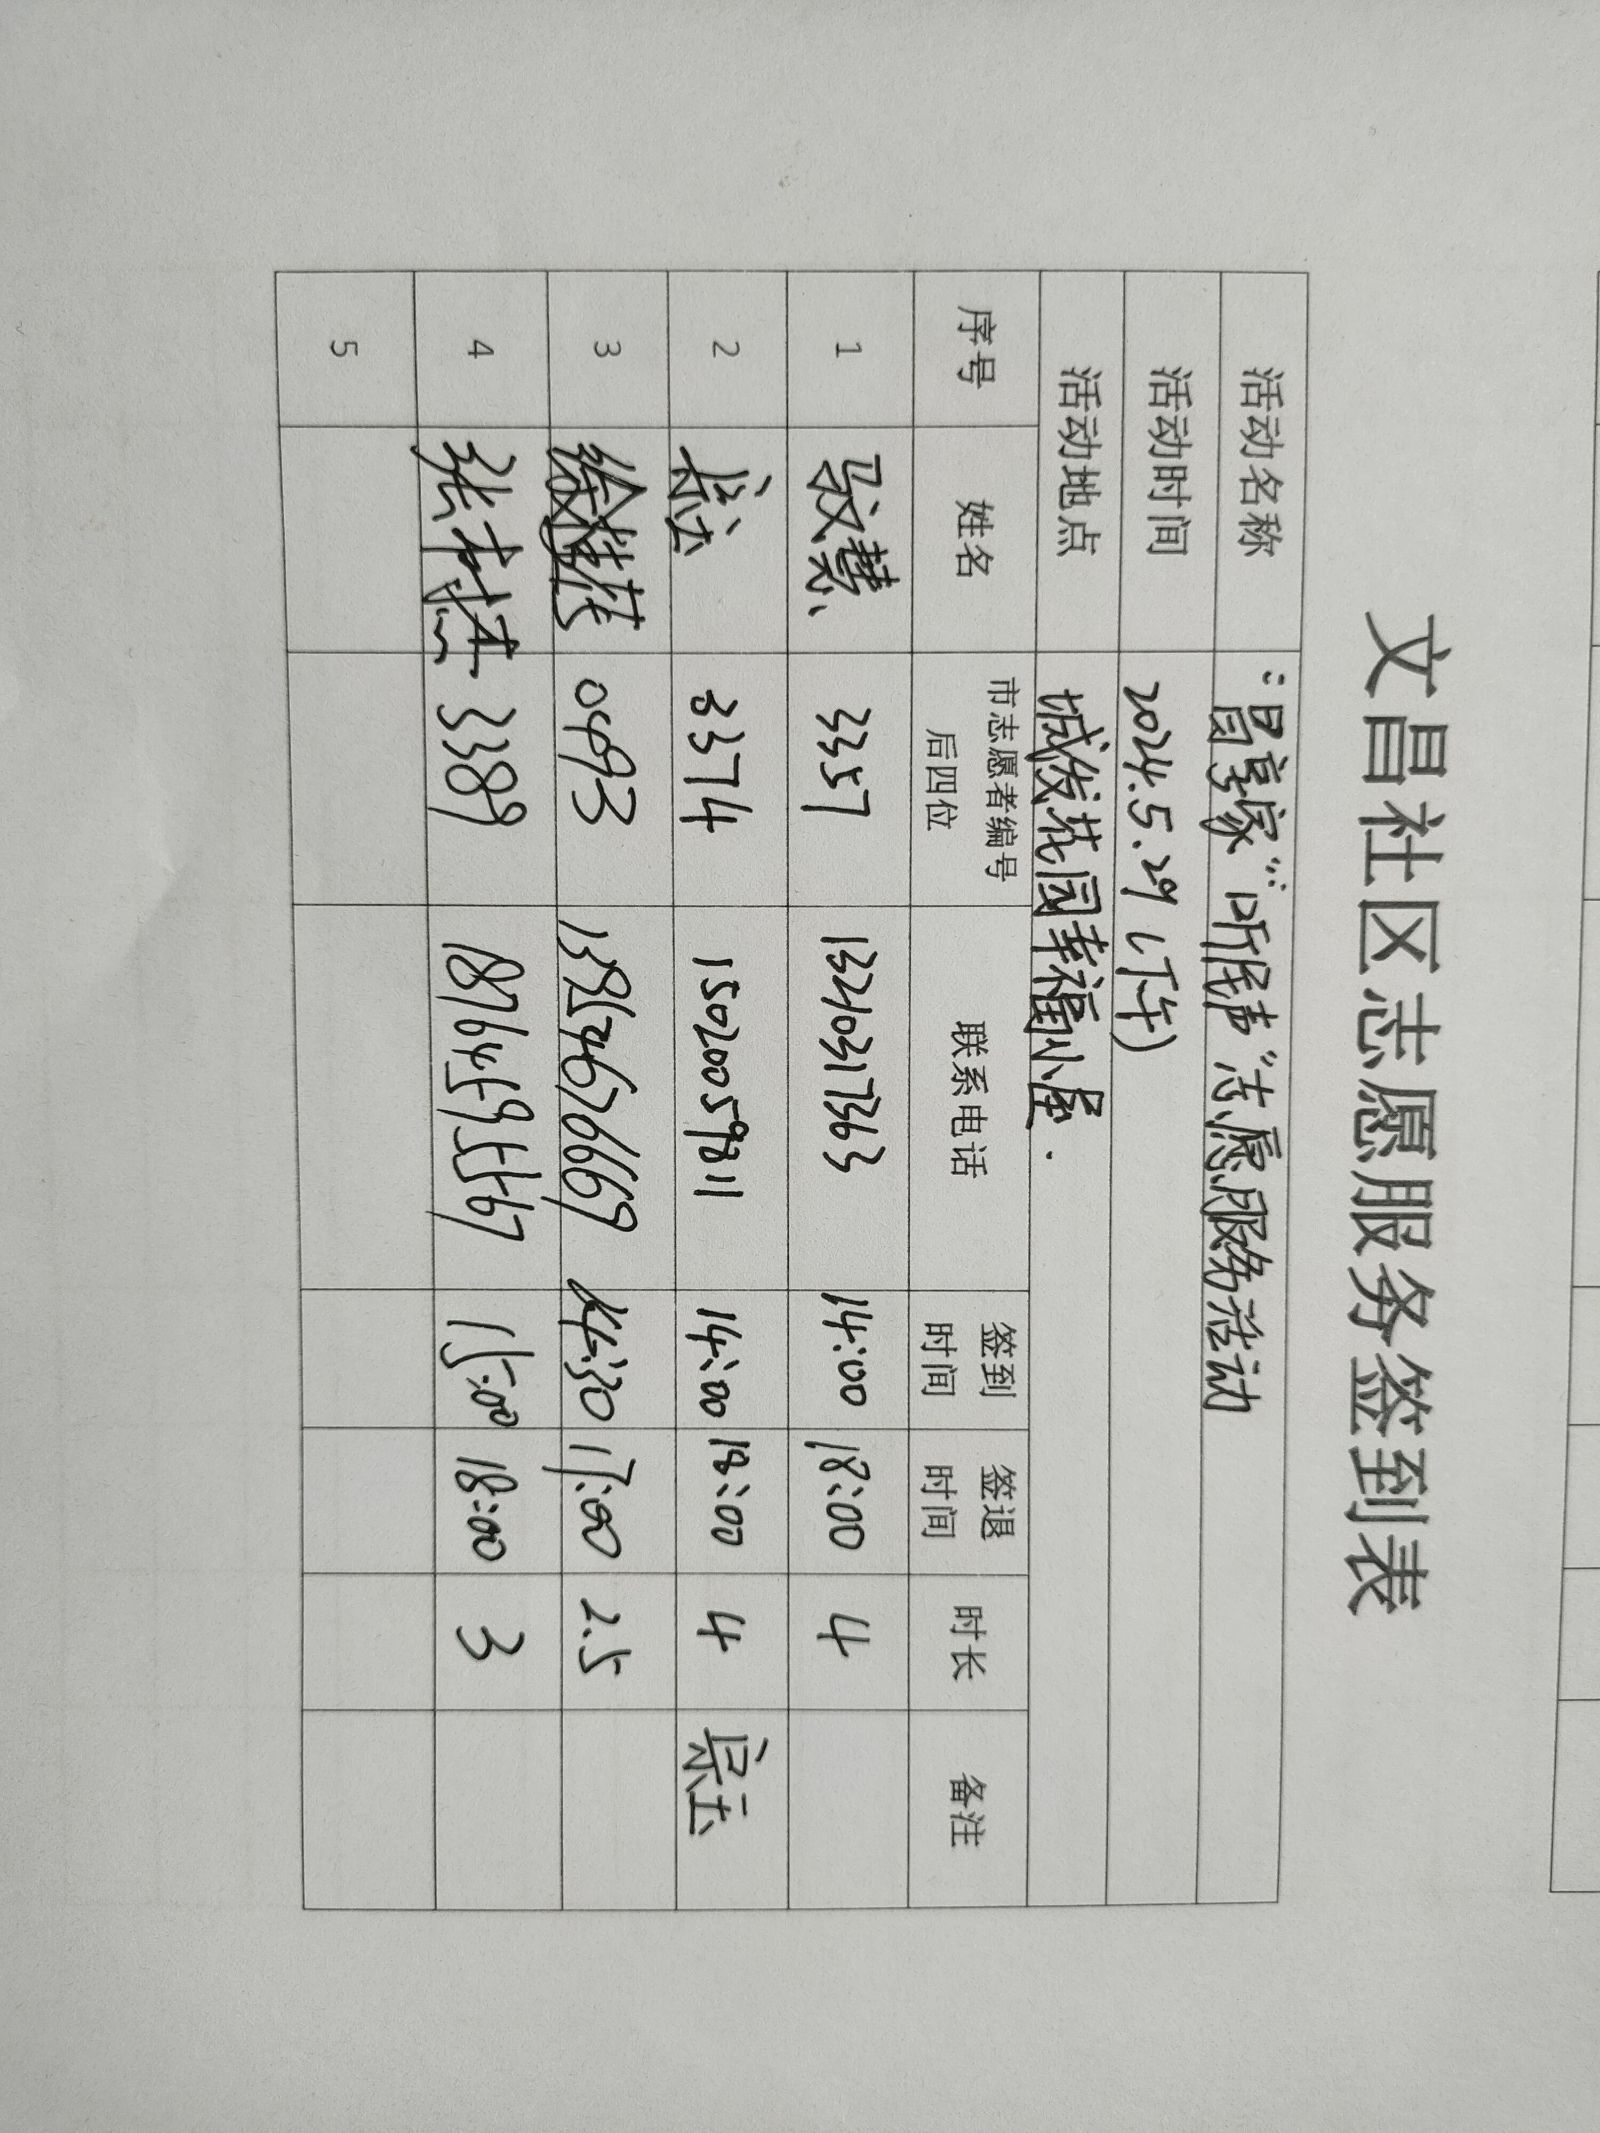 文昌社区志愿服务签到表
活动名称 “昌享家”“听民声”志愿服务活动
活动时间 2024.5.29（下午）
活动地点 城俊花园幸福小屋.
序号 姓名 市志愿者编号后四位 联系电话 签到时间 签退时间 时长 备注
1 3357 13240317363 14:00 18:00 4
2 3374 15020059811 14:00 18:00 4
3 0493 14:30 17:00 2.5
4 3389 18764595567 15:00 18:00 3
5